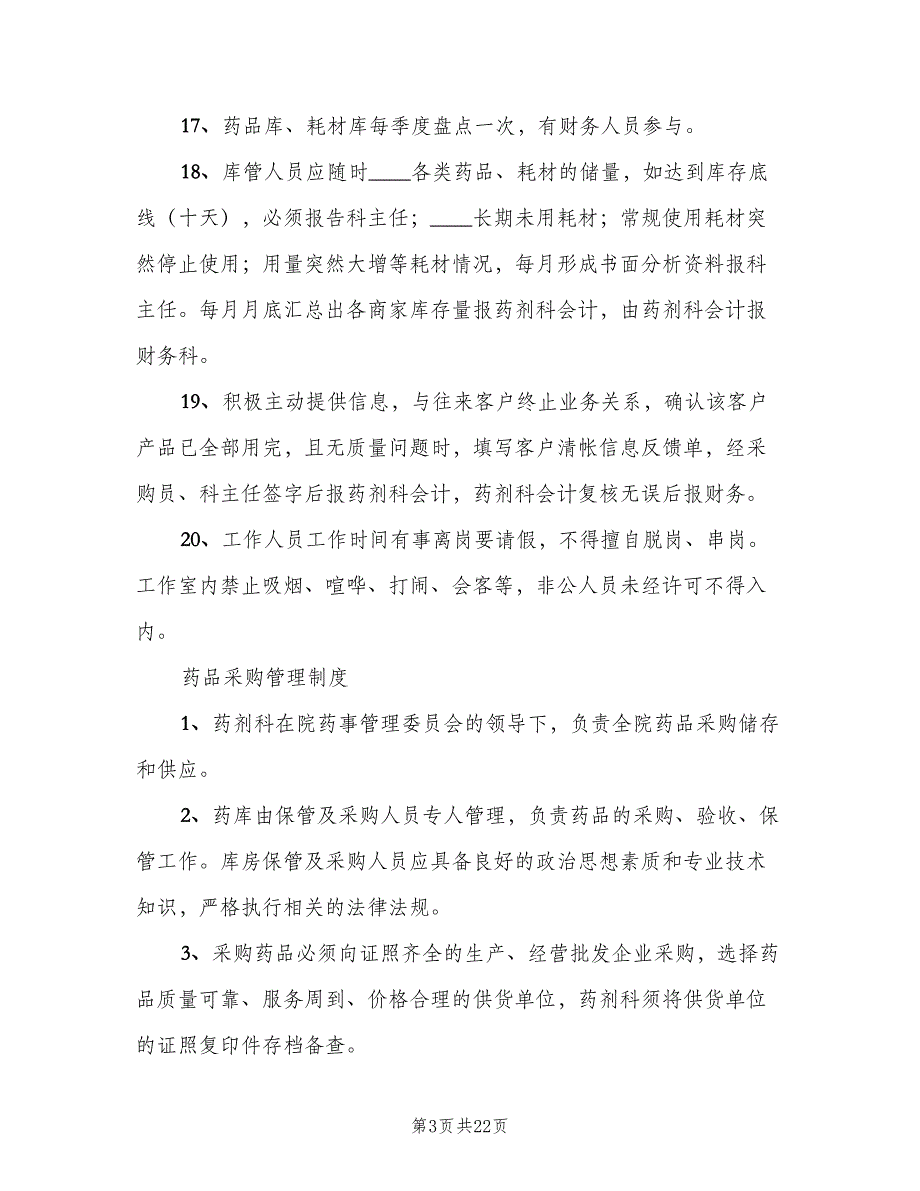 17、药品库、耗材库每季度盘点一次，有财务人员参与。
18、库管人员应随时____各类药品、耗材的储量，如达到库存底
线（十天），必须报告科主任；____长期未用耗材；常规使用耗材突
然停止使用；用量突然大增等耗材情况，每月形成书面分析资料报科
主任。每月月底汇总出各商家库存量报药剂科会计，由药剂科会计报
财务科。
19、积极主动提供信息，与往来客户终止业务关系，确认该客户
产品已全部用完，且无质量问题时，填写客户清帐信息反馈单，经采
购员、科主任签字后报药剂科会计，药剂科会计复核无误后报财务。
20、工作人员工作时间有事离岗要请假，不得擅自脱岗、串岗。
工作室内禁止吸烟、喧哗、打闹、会客等，非公人员未经许可不得入
内。
药品采购管理制度
1、药剂科在院药事管理委员会的领导下，负责全院药品采购储存
和供应。
2、药库由保管及采购人员专人管理，负责药品的采购、验收、保
管工作。库房保管及采购人员应具备良好的政治思想素质和专业技术
知识，严格执行相关的法律法规。
3、采购药品必须向证照齐全的生产、经营批发企业采购，选择药
品质量可靠、服务周到、价格合理的供货单位，药剂科须将供货单位
的证照复印件存档备查。
第3页共22页